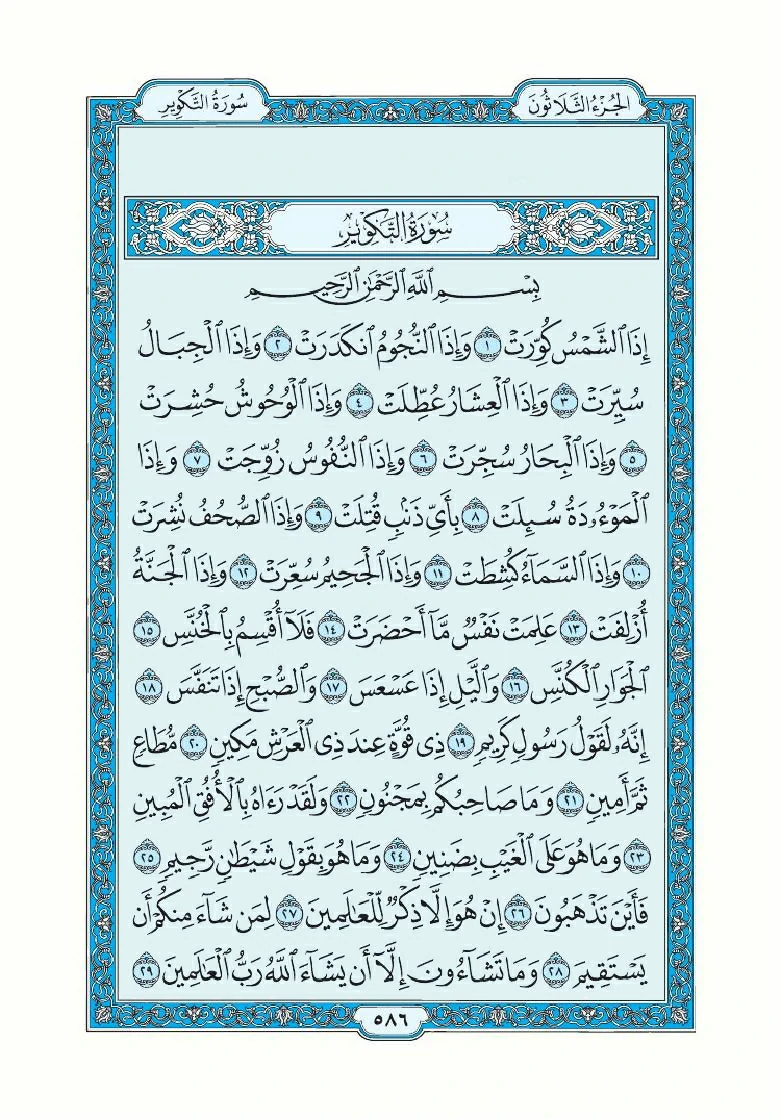 الجُزْءُ الثَّلَاثُونَ
سُورَةُ التَّكْوِيرِ
سُورَةُ التَّكْوِيرِ
بِسْمِ ٱللَّهِ ٱلرَّحْمَٰنِ ٱلرَّحِيمِ
إِذَا ٱلشَّمْسُ كُوِّرَتْ ١ وَإِذَا ٱلنُّجُومُ ٱنكَدَرَتْ ٢ وَإِذَا ٱلْجِبَالُ
سُيِّرَتْ ٣ وَإِذَا ٱلْعِشَارُ عُطِّلَتْ ٤ وَإِذَا ٱلْوُحُوشُ حُشِرَتْ
٥ وَإِذَا ٱلْبِحَارُ سُجِّرَتْ ٦ وَإِذَا ٱلنُّفُوسُ زُوِّجَتْ ٧ وَإِذَا
ٱلْمَوْءُۥدَةُ سُئِلَتْ ٨ بِأَيِّ ذَنۢبٍ قُتِلَتْ ٩ وَإِذَا ٱلصُّحُفُ نُشِرَتْ
١٠ وَإِذَا ٱلسَّمَآءُ كُشِطَتْ ١١ وَإِذَا ٱلْجَحِيمُ سُعِّرَتْ ١٢ وَإِذَا ٱلْجَنَّةُ
أُزْلِفَتْ ١٣ عَلِمَتْ نَفْسٌ مَّآ أَحْضَرَتْ ١٤ فَلَآ أُقْسِمُ بِٱلْخُنَّسِ ١٥
ٱلْجَوَارِ ٱلْكُنَّسِ ١٦ وَٱلَّيْلِ إِذَا عَسْعَسَ ١٧ وَٱلصُّبْحِ إِذَا تَنَفَّسَ ١٨
إِنَّهُۥ لَقَوْلُ رَسُولٍ كَرِيمٍ ١٩ ذِى قُوَّةٍ عِندَ ذِى ٱلْعَرْشِ مَكِينٍ ٢٠ مُّطَاعٍ
ثَمَّ أَمِينٍ ٢١ وَمَا صَاحِبُكُم بِمَجْنُونٍ ٢٢ وَلَقَدْ رَءَاهُ بِٱلْأُفُقِ ٱلْمُبِينِ
٢٣ وَمَا هُوَ عَلَى ٱلْغَيْبِ بِضَنِينٍ ٢٤ وَمَا هُوَ بِقَوْلِ شَيْطَانٍ رَّجِيمٍ ٢٥
فَأَيْنَ تَذْهَبُونَ ٢٦ إِنْ هُوَ إِلَّا ذِكْرٌ لِّلْعَالَمِينَ ٢٧ لِمَن شَآءَ مِنكُمْ أَن
يَسْتَقِيمَ ٢٨ وَمَا تَشَآءُونَ إِلَّآ أَن يَشَآءَ ٱللَّهُ رَبُّ ٱلْعَالَمِينَ ٢٩
٥٨٦